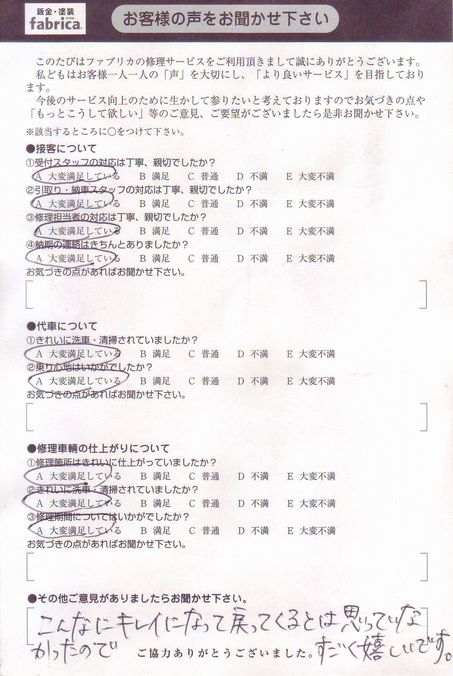 鈑金・塗装
fabrica.
お客様の声をお聞かせ下さい
このたびはファブリカの修理サービスをご利用頂きまして誠にありがとうございます。
私どもはお客様一人一人の「声」を大切にし、「より良いサービス」を目指しており
ます。
今後のサービス向上のために生かして参りたいと考えておりますのでお気づきの点や
「もっとこうして欲しい」等のご意見、ご要望がございましたら是非お聞かせ下さい。
※該当するところに○をつけて下さい。
●接客について
①受付スタッフの対応は丁寧、親切でしたか？
A 大変満足している B 満足 C 普通 D 不満 E 大変不満
②引取り・納車スタッフの対応は丁寧、親切でしたか？
A 大変満足している B 満足 C 普通 D 不満 E 大変不満
③修理担当者の対応は丁寧、親切でしたか？
A 大変満足している B 満足 C 普通 D 不満 E 大変不満
④納期の連絡はきちんとありましたか？
A 大変満足している B 満足 C 普通 D 不満 E 大変不満
お気づきの点があればお聞かせ下さい。
●代車について
①きれいに洗車・清掃されていましたか？
A 大変満足している B 満足 C 普通 D 不満 E 大変不満
②乗り心地はいかがでしたか？
A 大変満足している B 満足 C 普通 D 不満 E 大変不満
お気づきの点があればお聞かせ下さい。
●修理車輌の仕上がりについて
①修理箇所はきれいに仕上がっていましたか？
A 大変満足している B 満足 C 普通 D 不満 E 大変不満
②きれいに洗車・清掃されていましたか？
A 大変満足している B 満足 C 普通 D 不満 E 大変不満
③修理期間についてはいかがでしたか？
A 大変満足している B 満足 C 普通 D 不満 E 大変不満
お気づきの点があればお聞かせ下さい。
●その他ご意見がありましたらお聞かせ下さい。
こんなにキレイになって戻ってくるとは思っていな
かったので すごく嬉しいです。
ご協力ありがとうございました。